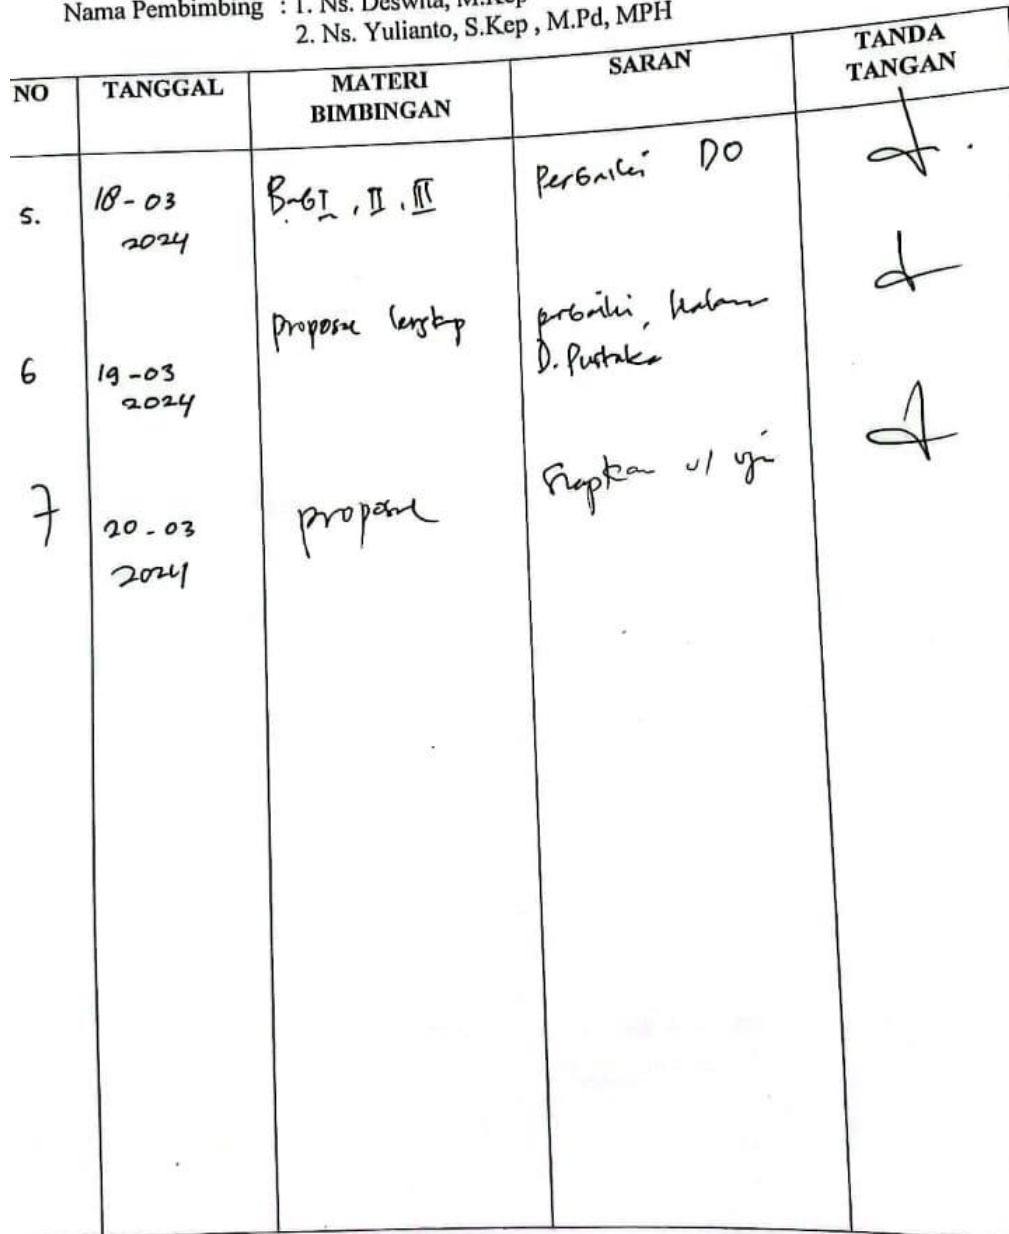 Nama Pembimbing : 1. Ns. Deswita, M.Kep
2. Ns. Yulianto, S.Kep , M.Pd, MPH
NO TANGGAL MATERI BIMBINGAN SARAN TANDA TANGAN
5. 18-03 2024 Bab I, II, III Perbaiki DO
6 19-03 2024 proposal lengkap perbaiki, D. Pustaka
7 20-03 2024 proposal Siapkan u/ uji